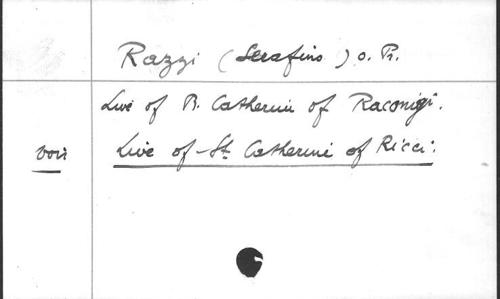 Razzi (Serafino) o. Pr.
Live of B. Catherine of Raconigi.
voir Live of St Catherine of Ricci.